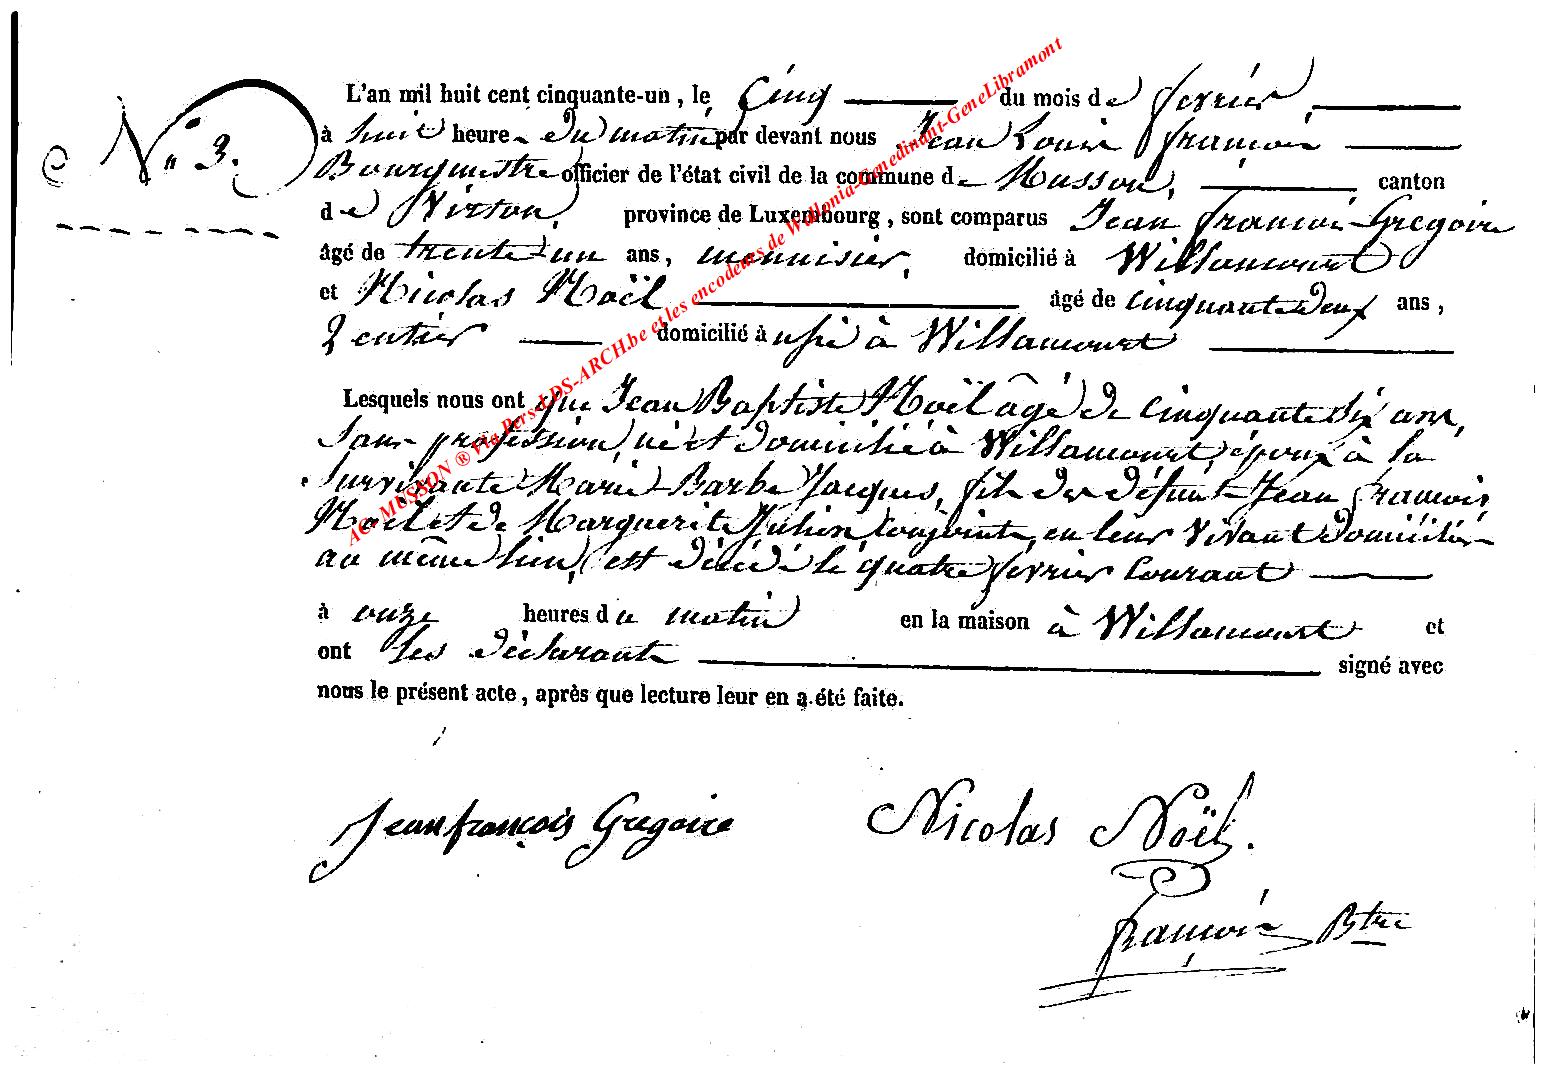 N° 3.
L'an mil huit cent cinquante-un, le cinq du mois de fevrier,
à huit heures du matin par devant nous Jean Louis françois
Bourgmestre officier de l'état civil de la commune de Musson, canton
de Virton province de Luxembourg, sont comparus Jean françois Gregoire
âgé de trente un ans, menuisier, domicilié à Willancourt
et Nicolas Noël âgé de cinquante deux ans,
Rentier domicilié à Willancourt
Lesquels nous ont que Jean Baptiste Noël âgé de cinquante six ans,
sans profession, né et domicilié à Willancourt, époux à la
survivante Marie Barbe Jacques, fils des défunts Jean francois
Noël et de Marguerite Julien, conjoints, en leur vivant domiciliés
au même lieu, est décédé le quatre fevrier courant
à onze heures du matin en la maison à Willancourt et
ont les déclarants signé avec
nous le présent acte, après que lecture leur en a été faite.
AC-MUSSON ® via Pers-LDS-ARCH.be et les encodeurs de Wallonia-Genedinant-GeneLibramont
Jean françois Gregoire Nicolas Noël.
françois Btre